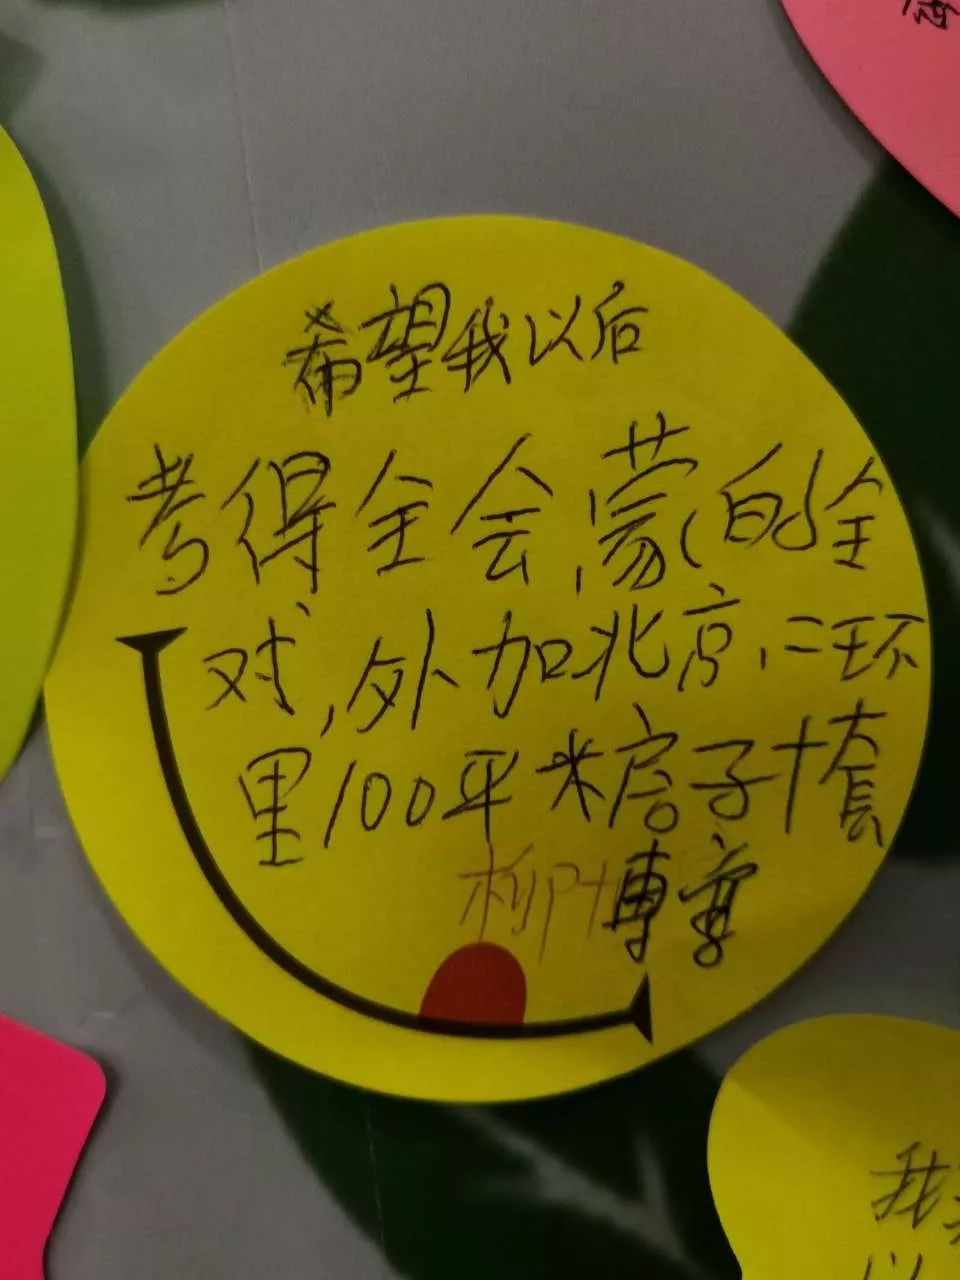 希望我以后
考得全会,蒙的全
对,外加北京二环
里100平米房子十套
我
以